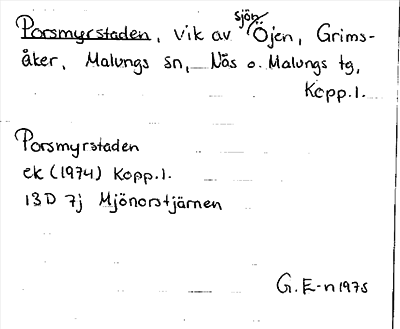 Porsmyrstaden, vik av sjön Öjen, Grims-
åker, Malungs sn, Nås o. Malungs tg,
Kopp.l.
Porsmyrstaden
ek (1974) Kopp.l.
13D 7j Mjönorstjärnen
G. E-n 1975